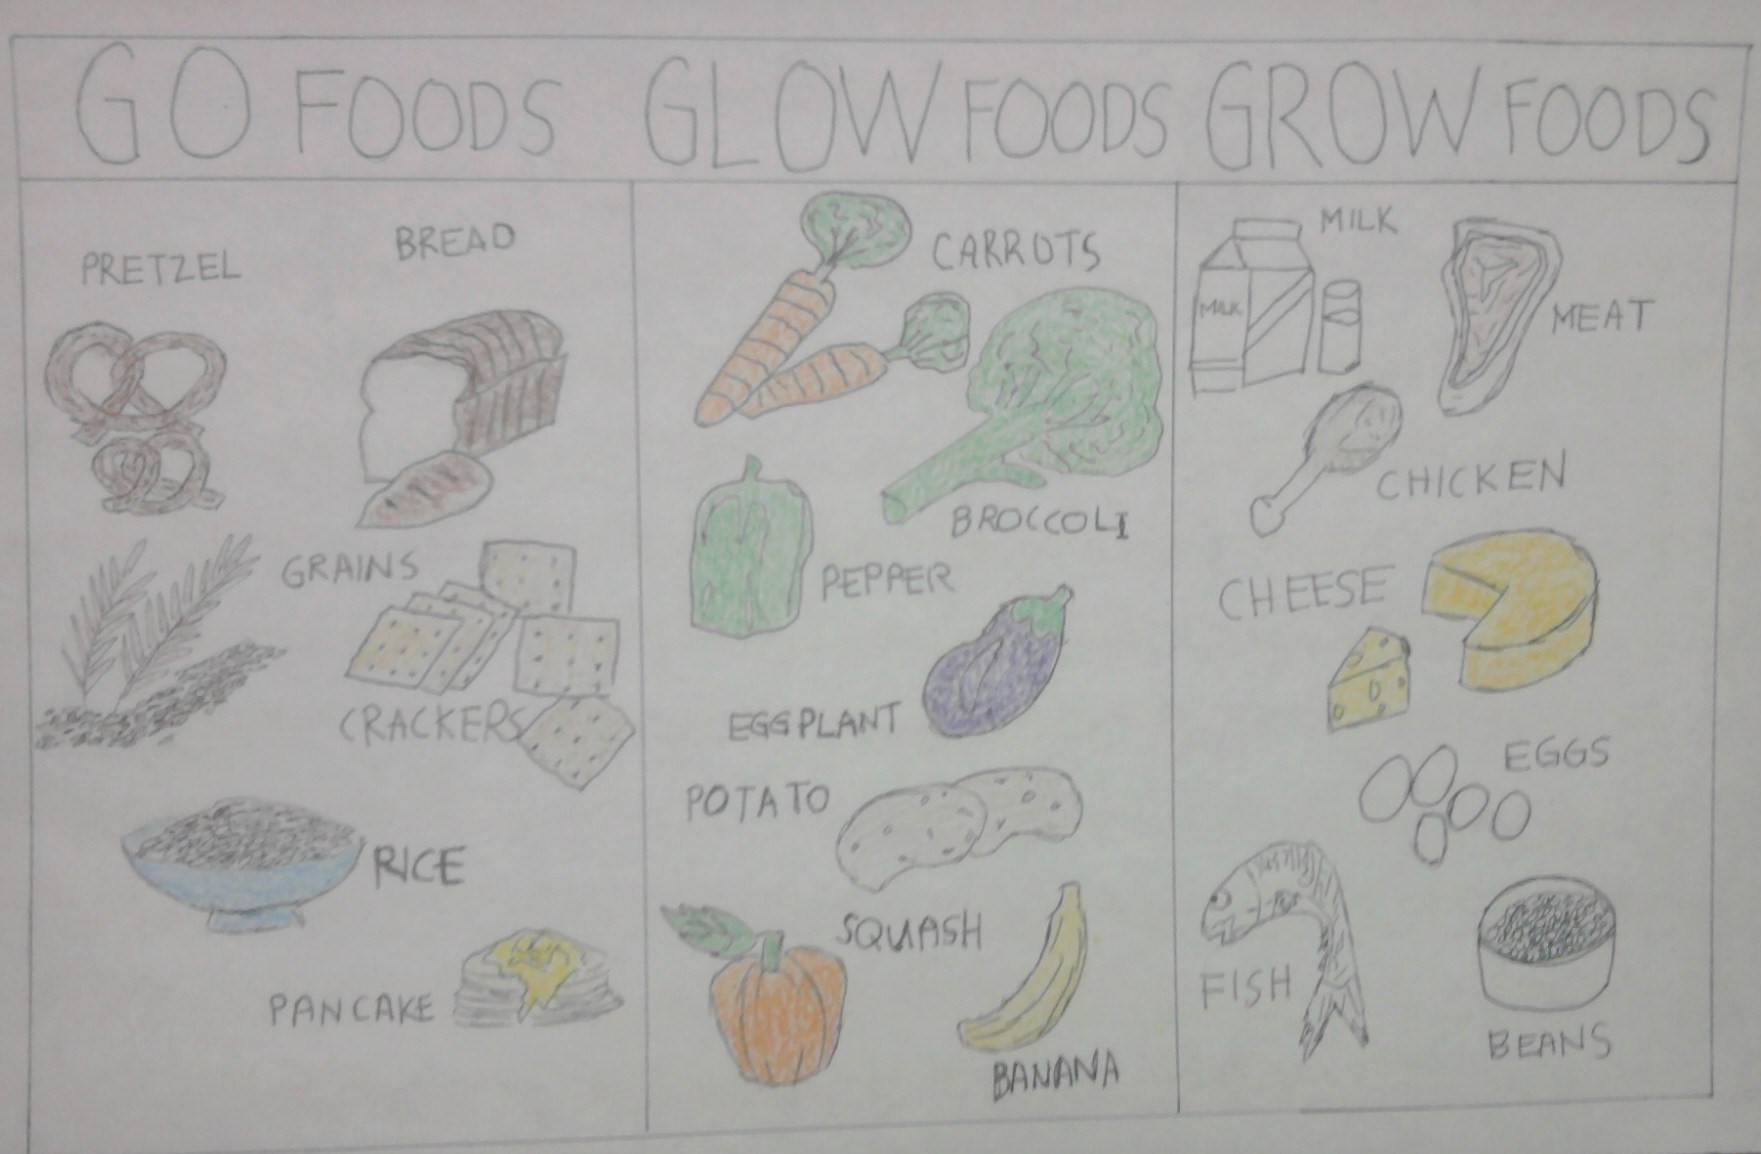 GO FOODS
GLOW FOODS
GROW FOODS
PRETZEL
BREAD
GRAINS
CRACKERS
RICE
PANCAKE
CARROTS
BROCCOLI
PEPPER
EGGPLANT
POTATO
SQUASH
BANANA
MILK
MILK
MEAT
CHICKEN
CHEESE
EGGS
FISH
BEANS